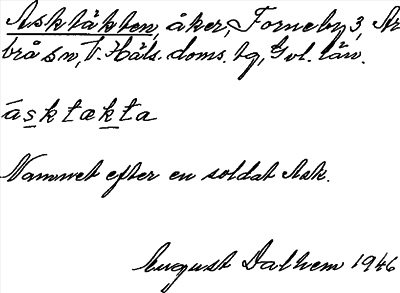 Asktäkten, åker, Forneby 3, Ar
brå sn, V. Häls. doms. tg, Gvl. län.
ásktækta
Namnet efter en soldat Ask.
August Dalhem 1946